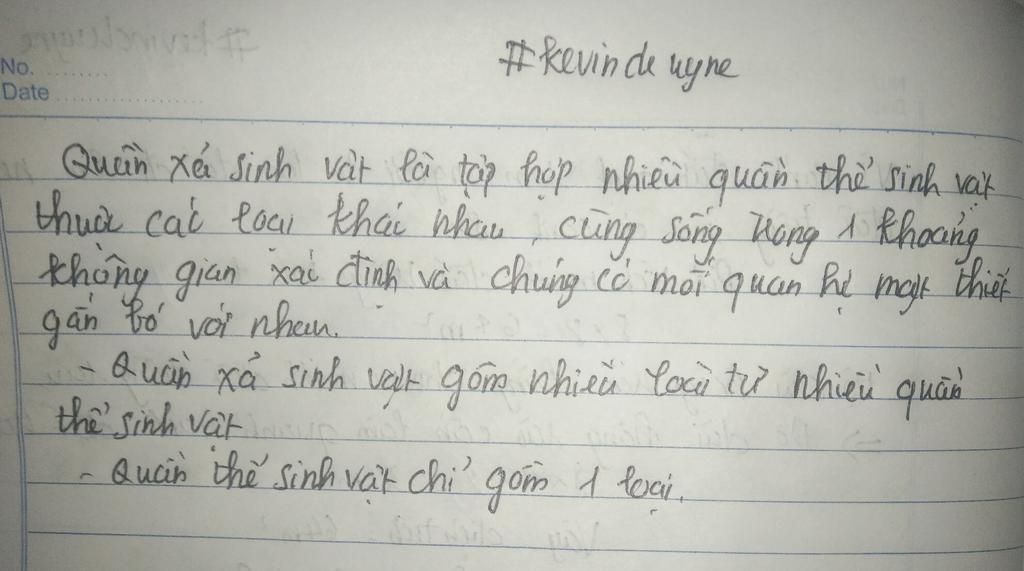 #kevin de uyne
No.
Date
Quần xã sinh vật là tập hợp nhiều quần thể sinh vật
thuộc các loại khác nhau, cùng sống trong 1 khoảng
không gian xác định và chúng có mối quan hệ mật thiết
gắn bó với nhau.
- Quần xã sinh vật gồm nhiều loài từ nhiều quần
thể sinh vật
- Quần thể sinh vật chỉ gồm 1 loại.